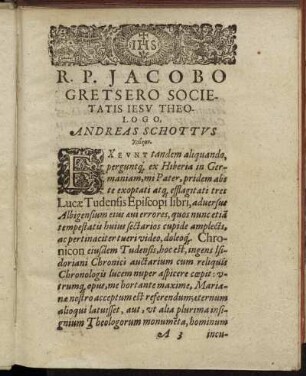 IHS
R. P. JACOBO
GRETSERO SOCIE-
TATIS IESV THEO-
LOGO,
ANDREAS SCHOTTVS
EXEVNT tandem aliquando,
perguntq́, ex Hiberia in Ger-
maniam, mi Pater, pridem abs
te exoptati atq́, efflagitati tres
Lucæ Tudensis Episcopi libri, aduersus
Albigensium eius æui errores, quos nunc etiã
tempestatis huius sectarios cupide amplecti,
ac pertinaciter tueri video, doleoq́. Chro-
nicon eiusdem Tudensis, hoc est, ingens Isi-
doriani Chronici auctarium cum reliquis
Chronologis lucem nuper aspicere cœpit: v-
trumq́, opus, me hortante maxime, Maria-
næ nostro acceptum est referendum, æternum
alioqui latuisset, aut, vt alia plurima insi-
gnium Theologorum monumẽta, hominum
A 3 incu-